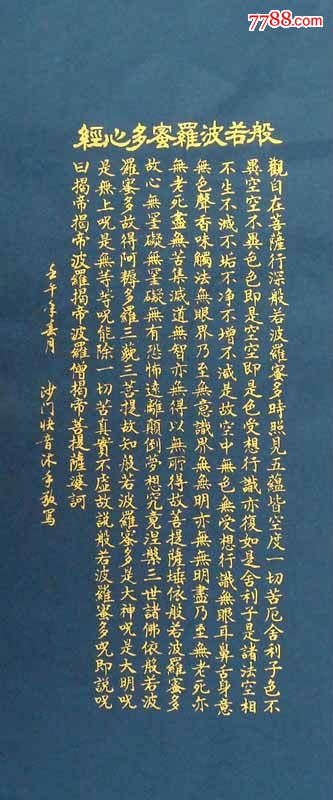 7788.com
般若波羅蜜多心經
觀自在菩薩行深般若波羅蜜多時照見五蘊皆空度一切苦厄舍利子色不
異空空不異色色即是空空即是色受想行識亦復如是舍利子是諸法空相
不生不滅不垢不净不增不減是故空中無色無受想行識無眼耳鼻舌身意
無色聲香味觸法無眼界乃至無意識界無無明亦無無明盡乃至無老死亦
無老死盡無苦集滅道無智亦無得以無所得故菩提薩埵依般若波羅蜜多
故心無罣礙無罣礙故無有恐怖遠離顛倒夢想究竟涅槃三世諸佛依般若波
羅蜜多故得阿耨多羅三藐三菩提故知般若波羅蜜多是大神呪是大明呪
是無上呪是無等等呪能除一切苦真實不虛故說般若波羅蜜多呪即說呪
曰揭帝揭帝波羅揭帝波羅僧揭帝菩提薩婆訶
壬午年 月 沙門快音沐手敬寫